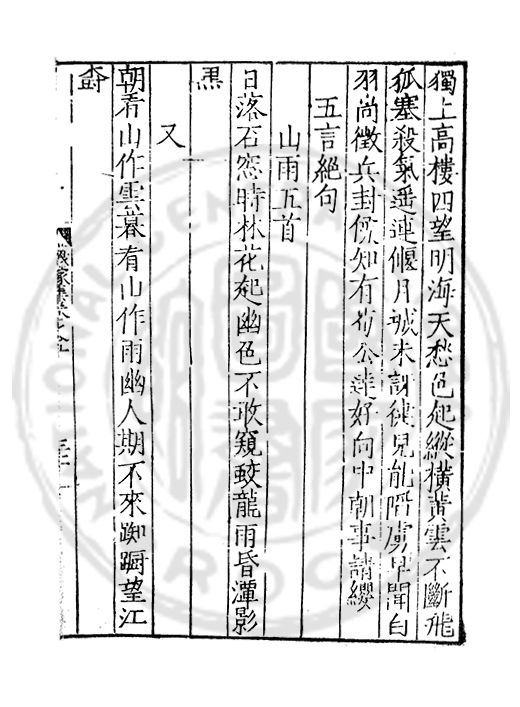 獨上高樓四望明海天愁色起縱橫黃雲不斷飛
狐塞殺氣遥連偃月城未健兒能䧟虜早聞白
羽尚徵兵封侯知有公達好向中朝事請纓
五言絕句
山雨五首
日落石窓時林花起幽色不敢窺蛟龍雨昏潭影
黒
又
朝看山作雲暮看山作雨幽人期不來踟蹰望江